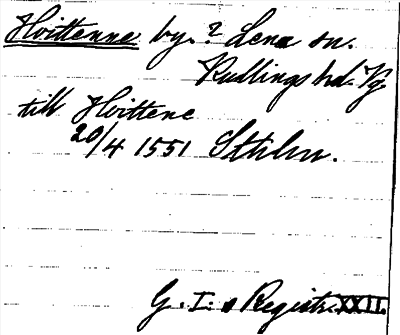 Hvittenne by. ? Lena sn.
Kullings hd. Vg.
till Hvittene
20/4 1551 Sthlm.
G. I. s Registr. XXII.